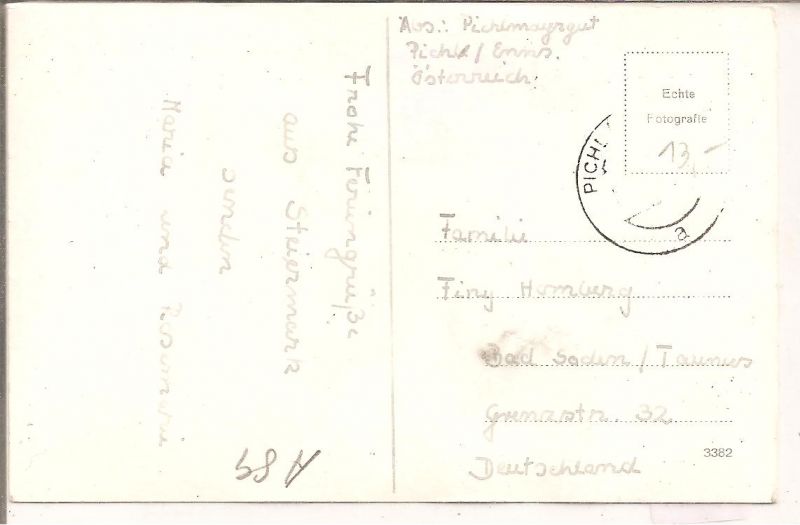 Frohe Feriengrüße
aus Steiermark
senden
Maria und Rosemarie
A 89
Abs.: Pichlmayrgut
Pichl / Enns
Österreich
Echte
Fotografie
13,-
PICHL
a
Familie
Finy Homberg
Bad Soden / Taunus
Grenzstr. 32
Deutschland
3382